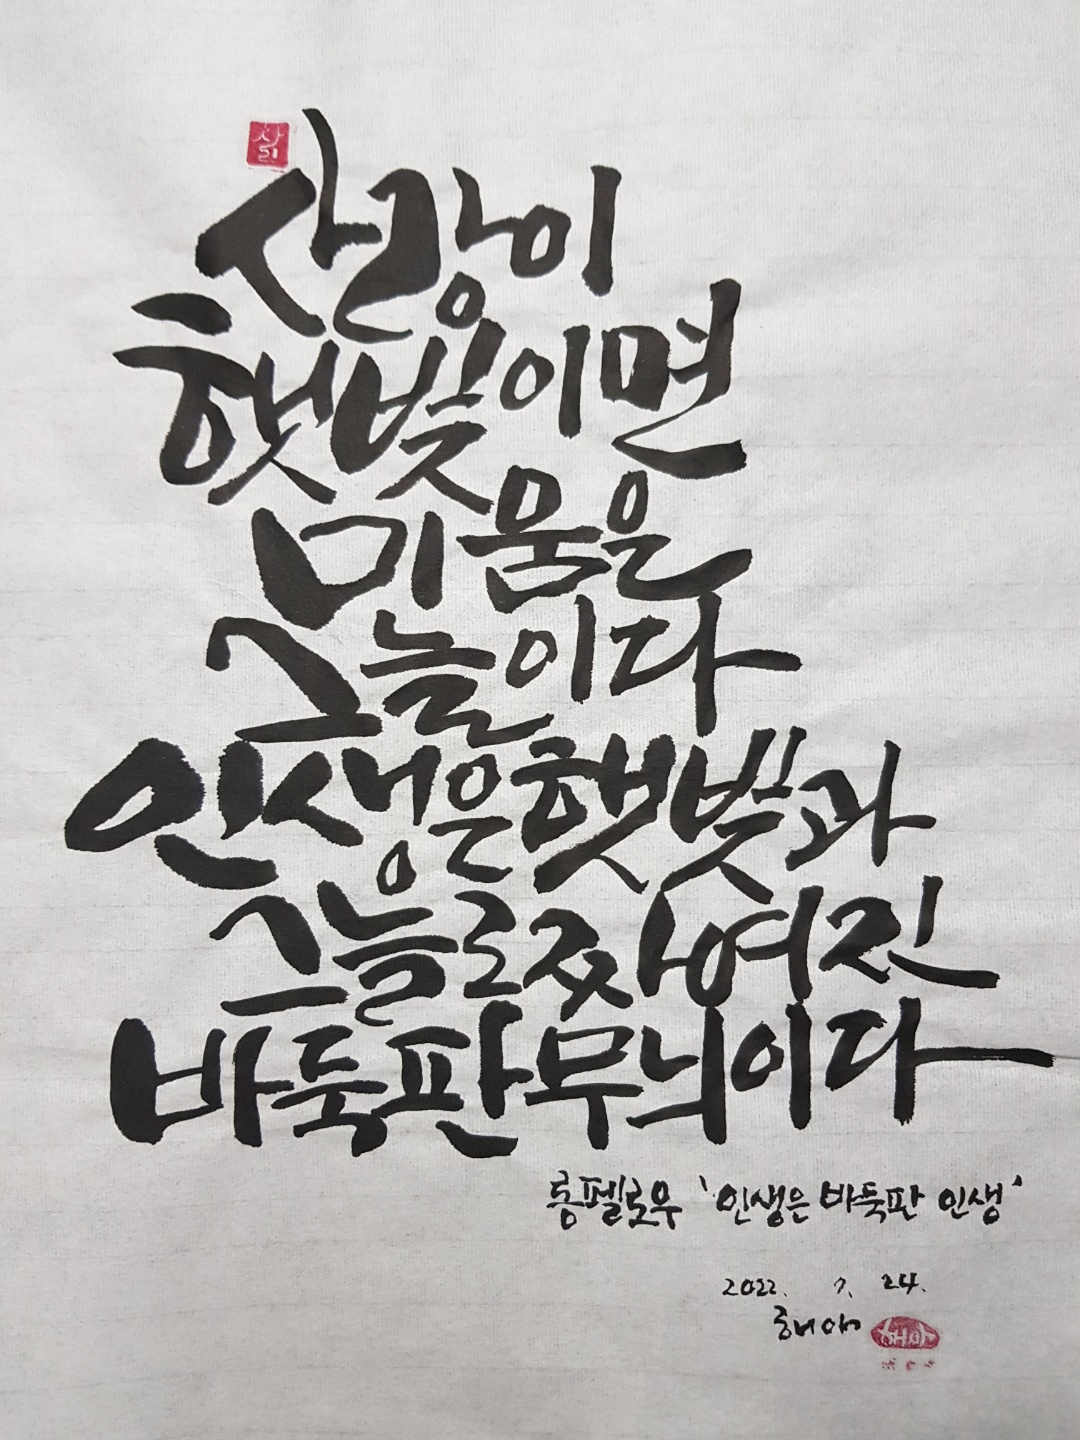 사랑이
햇빛이면
미움은
그늘이다
인생은 햇빛과
그늘로 짜여진
바둑판 무늬이다
롱펠로우 '인생은 바둑판 인생'
2022. 7. 24.